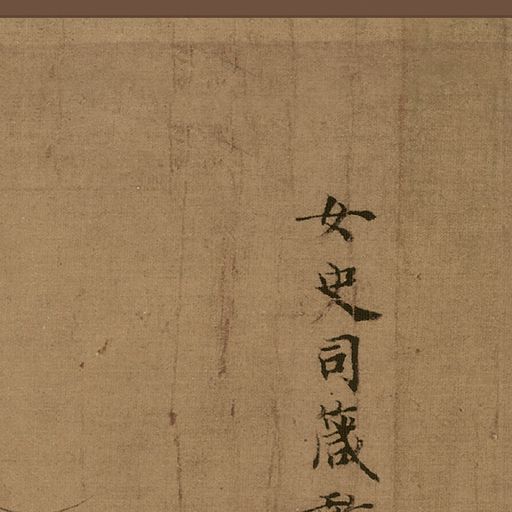 女史司箴敢